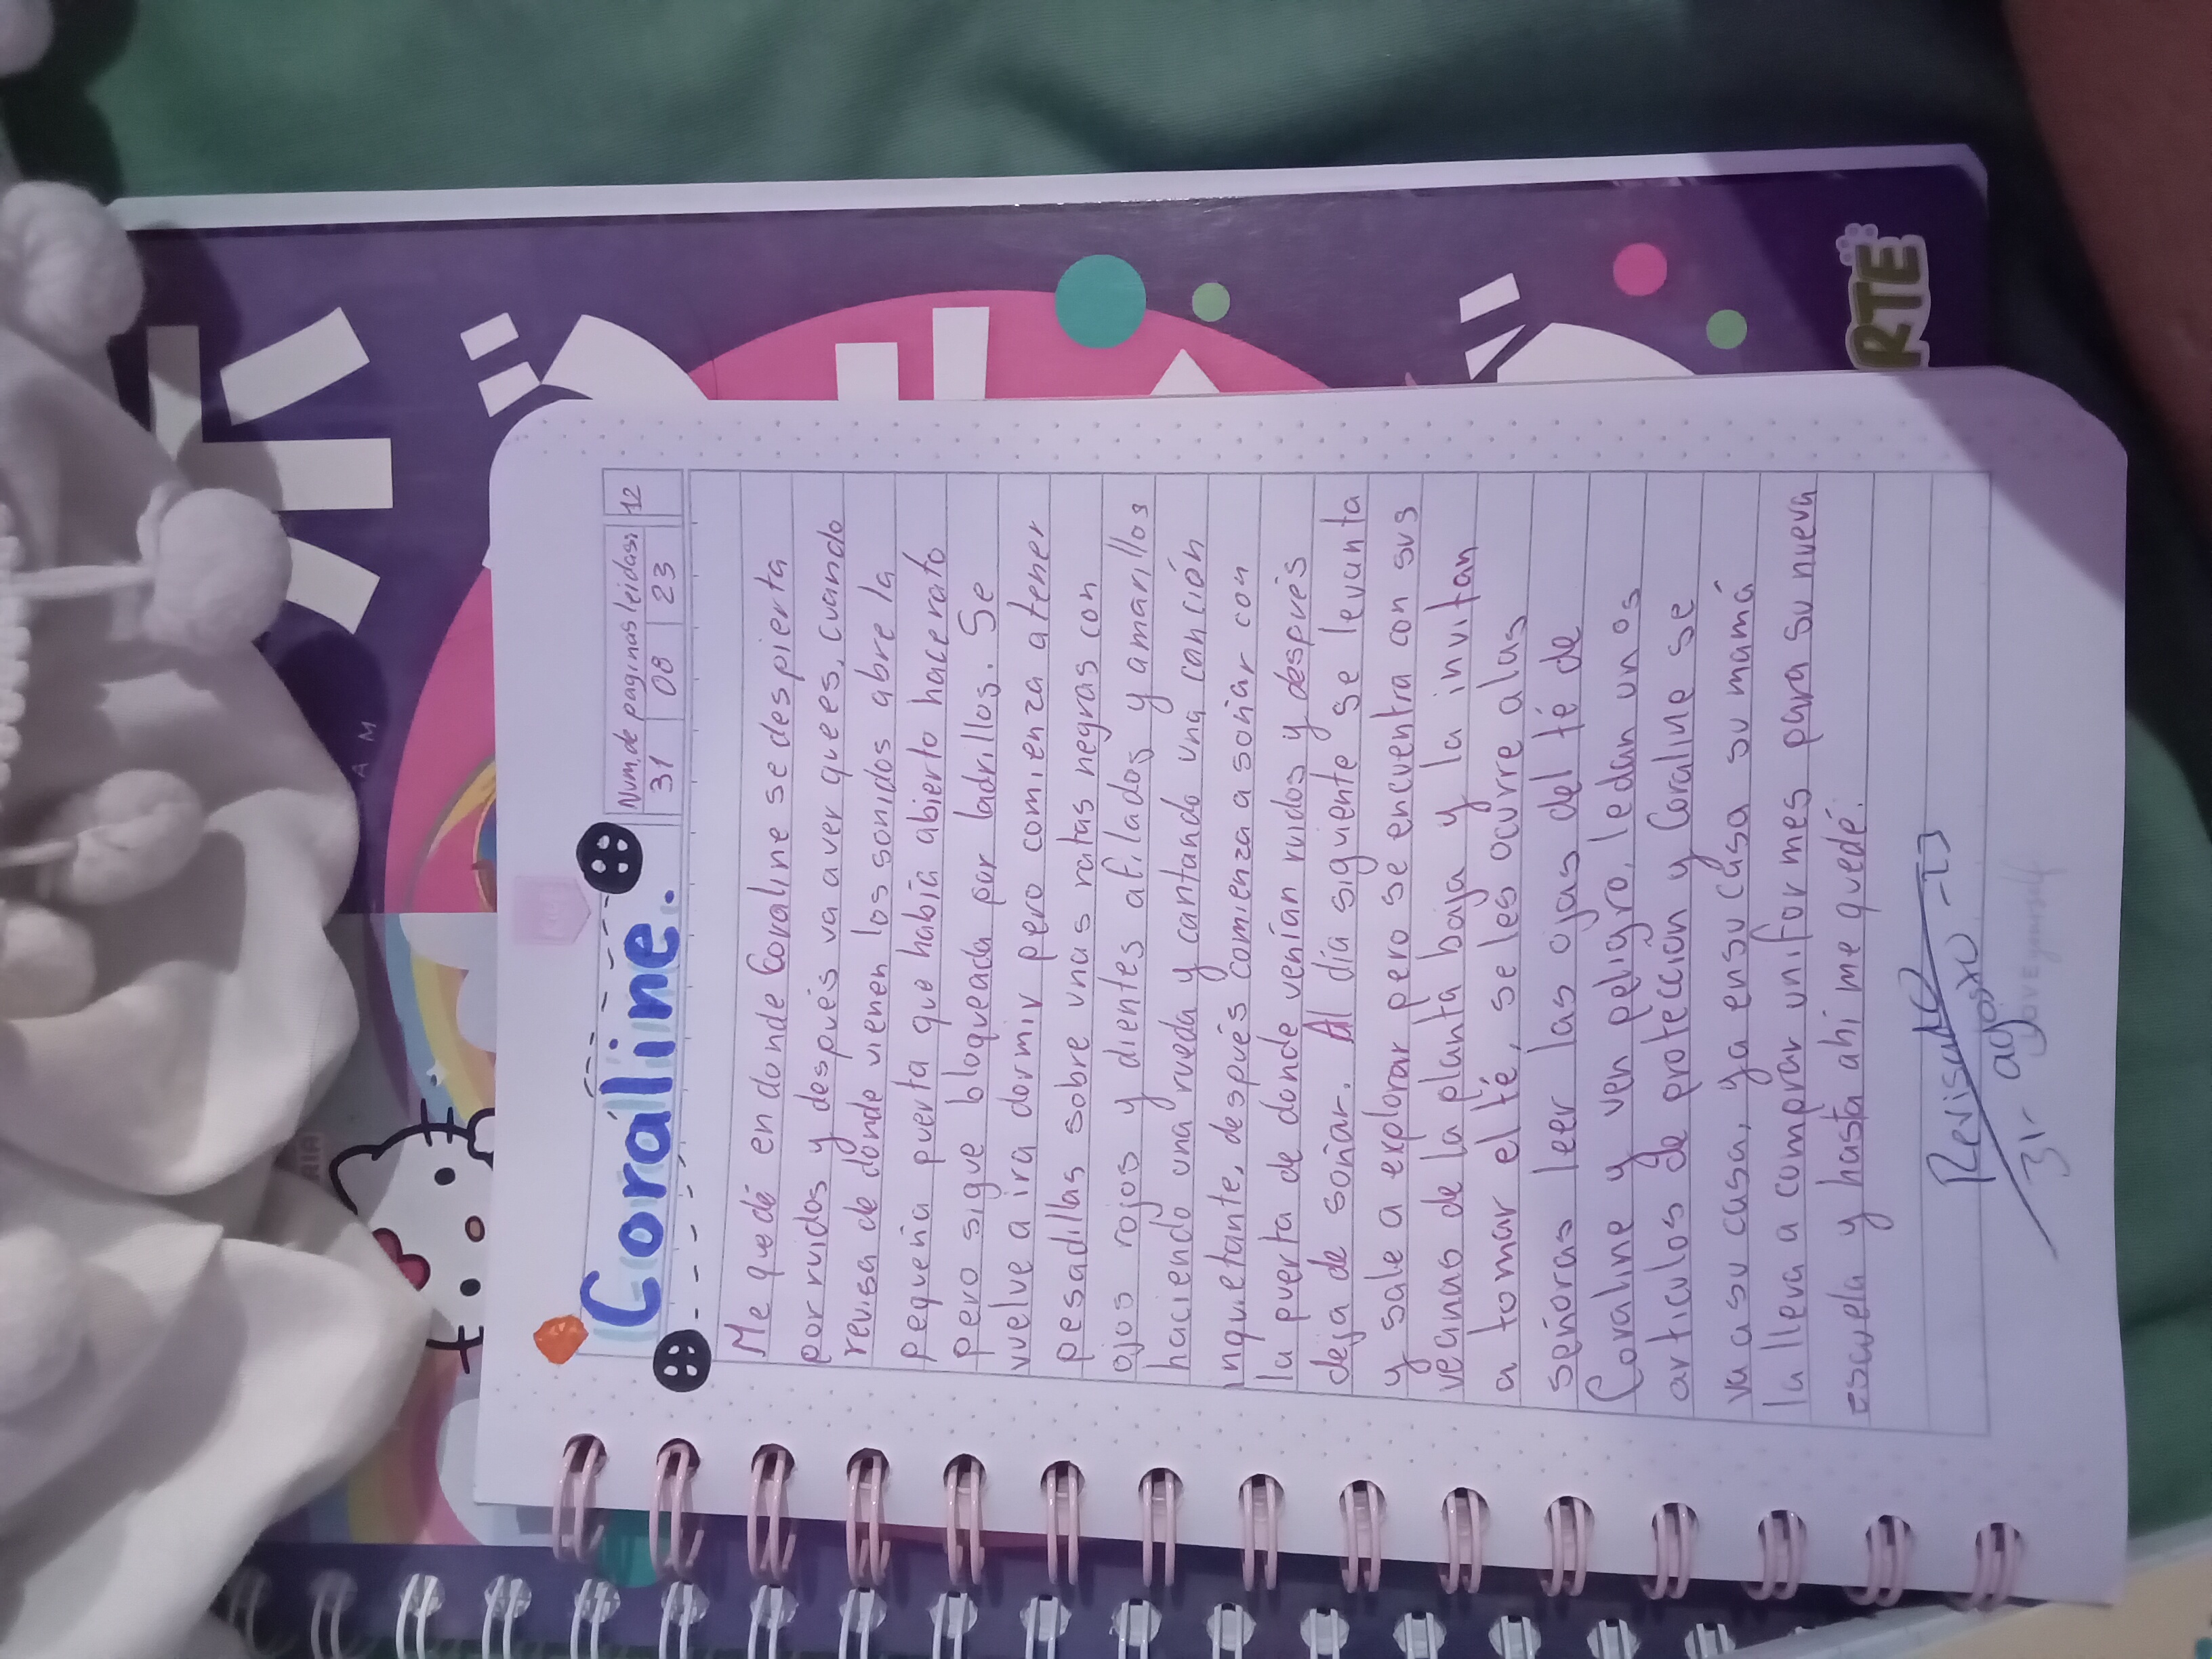 Coraline.
Num. de paginas leidas: 12
31 08 23
Me quedé en donde Coraline se despierta
por ruidos y después va a ver que es, cuando
revisa de donde vienen los sonidos abre la
pequeña puerta que había abierto hace rato
pero sigue bloqueada por ladrillos. Se
vuelve a ir a dormir pero comienza a tener
pesadillas sobre unas ratas negras con
ojos rojos y dientes afilados y amarillos
haciendo una rueda y cantando una canción
inquetante, después comienza a soñar con
la puerta de donde venían ruidos y después
deja de soñar. Al día siguiente se levanta
y sale a explorar pero se encuentra con sus
vecinas de la planta baja y la invitan
a tomar el té, se les ocurre a las
señoras leer las ojas del té de
Coraline y ven peligro, le dan unos
articulos de protección y Coraline se
va a su casa, ya en su casa su mamá
la lleva a comprar uniformes para su nueva
escuela y hasta ahi me quedé.
Revisado
31- agosto -23
RTE
AM
RIA